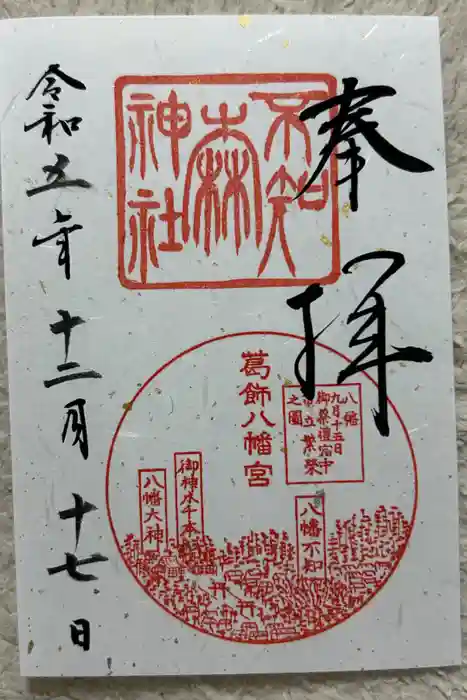 奉拝
不知
森
神社
葛飾八幡宮
八幡
九月十五日
御祭禮宮中
市立繁榮
之圖
八幡不知
御神木千本
八幡大神
令和五年十二月十七日